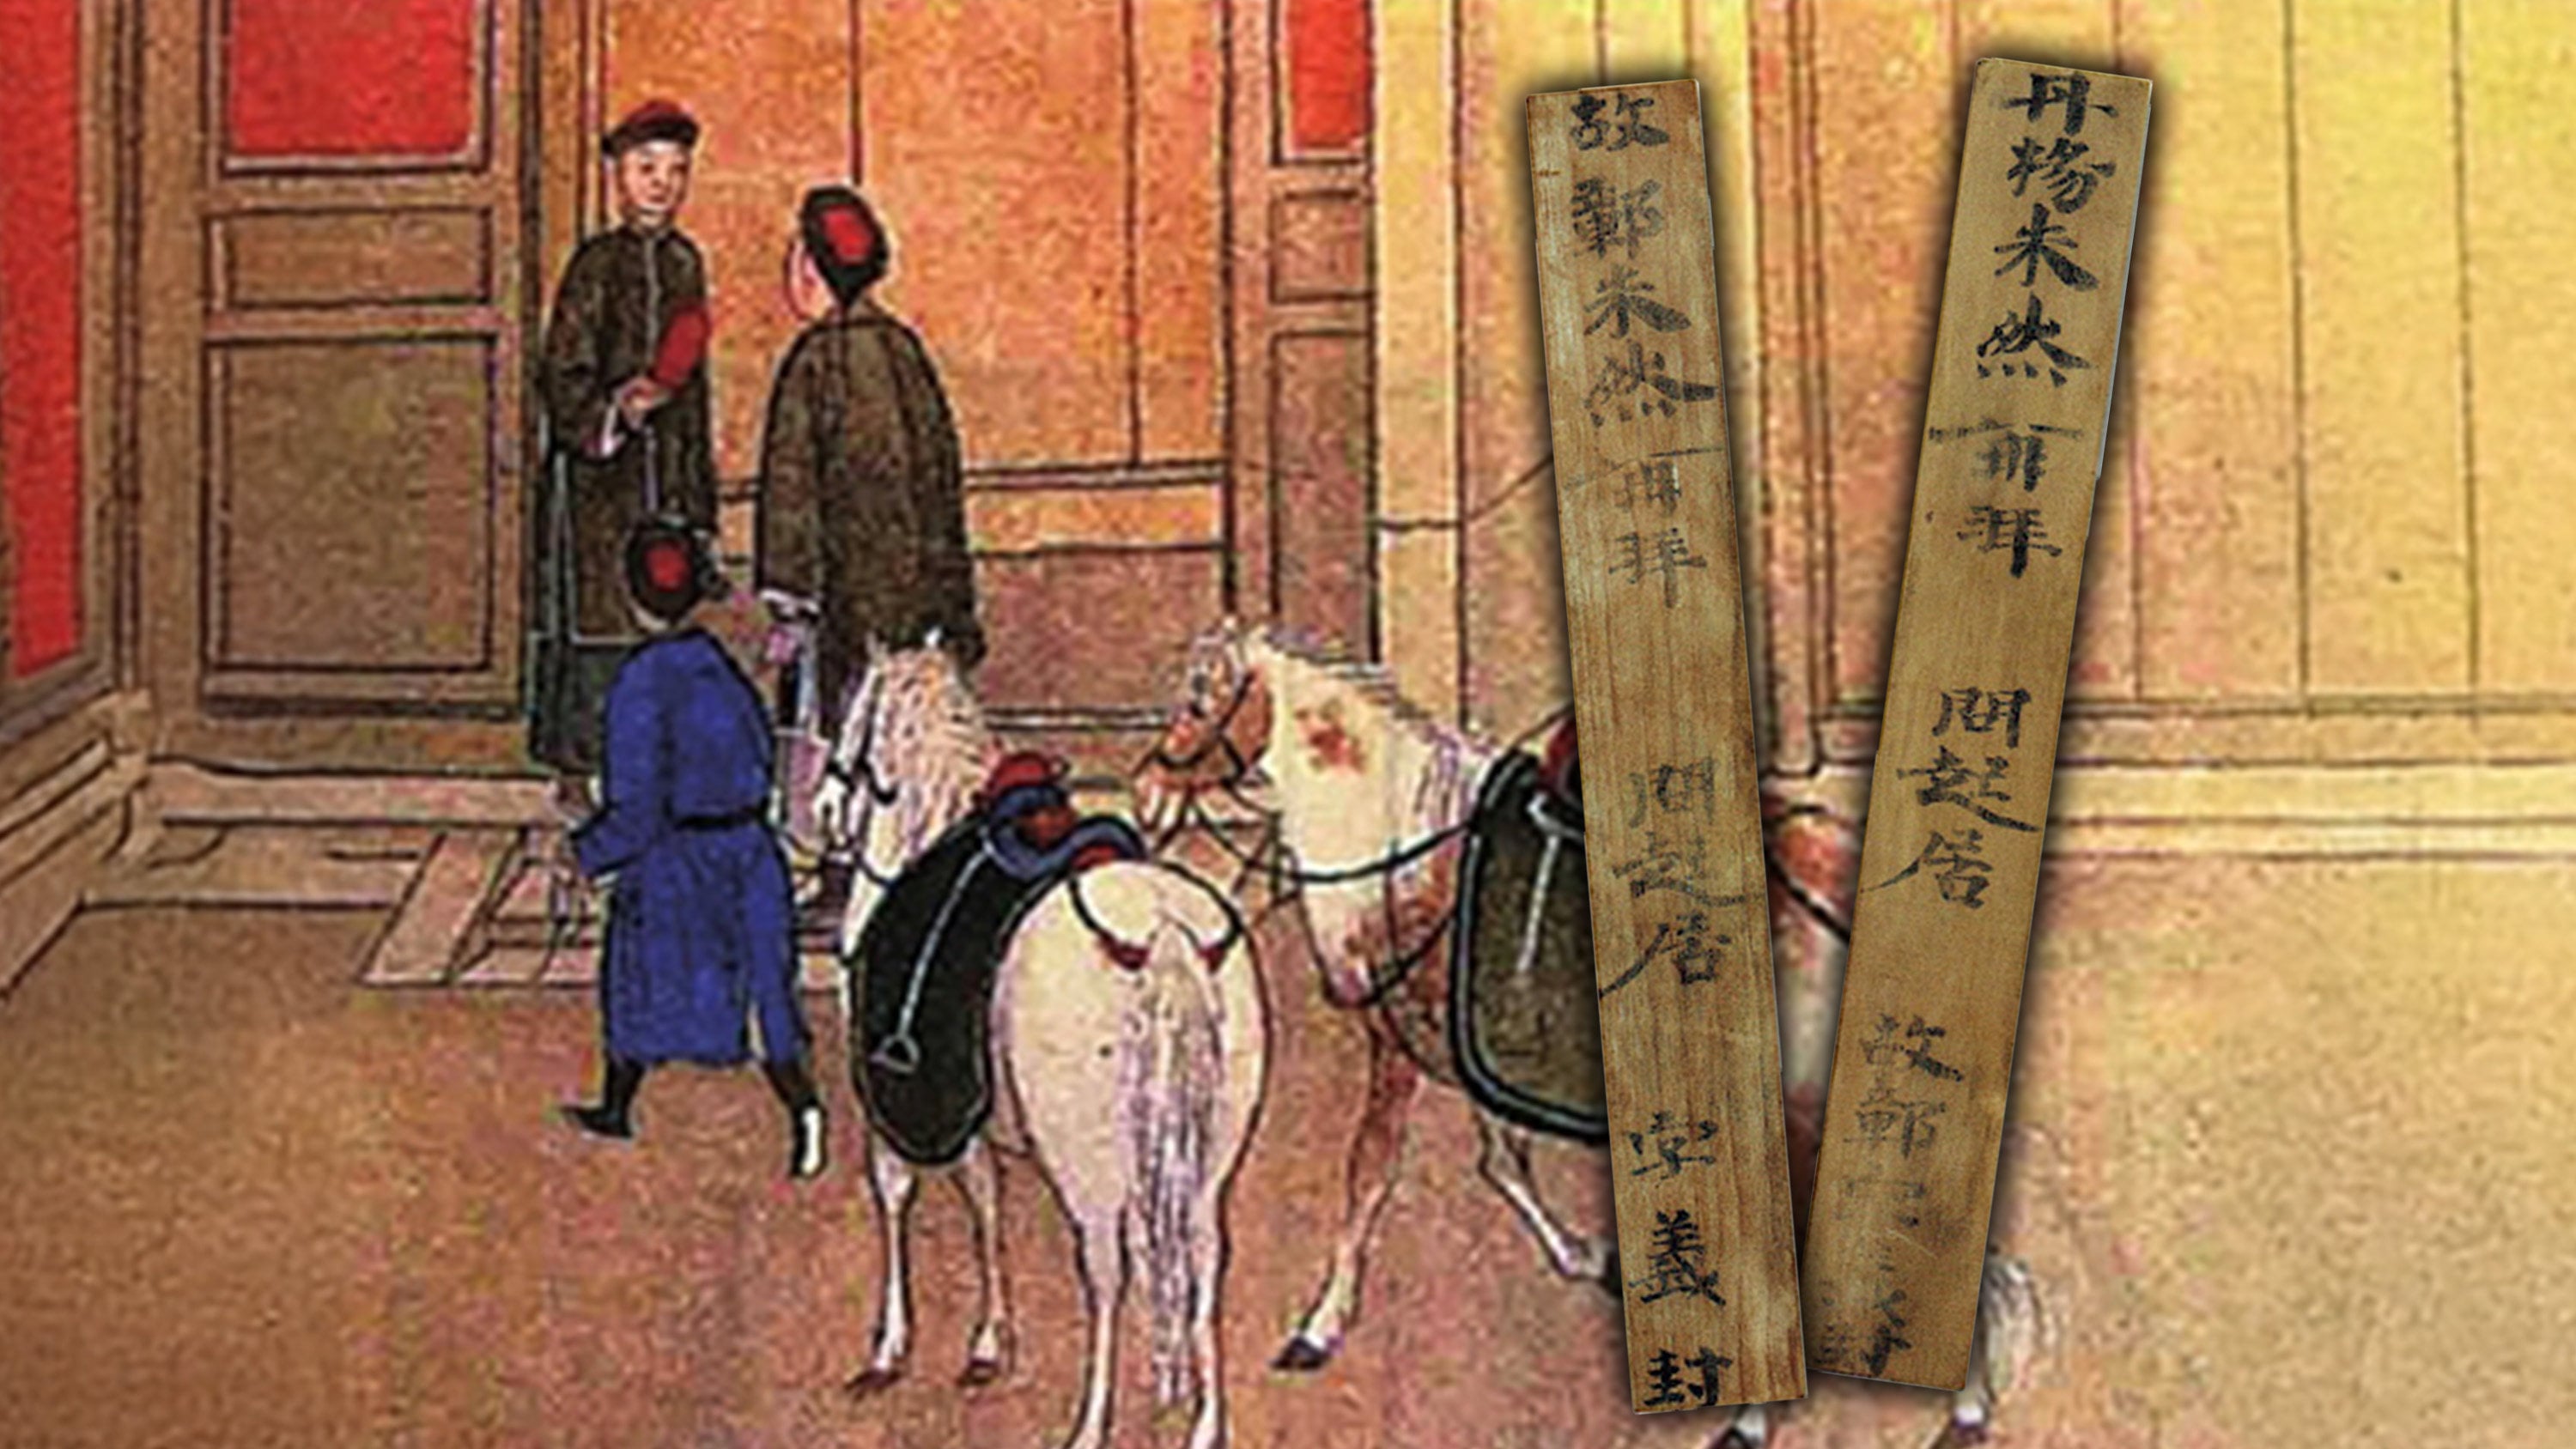 丹楊朱然再拜 問起居 故鄣 封
故鄣朱然再拜 問起居 字義封